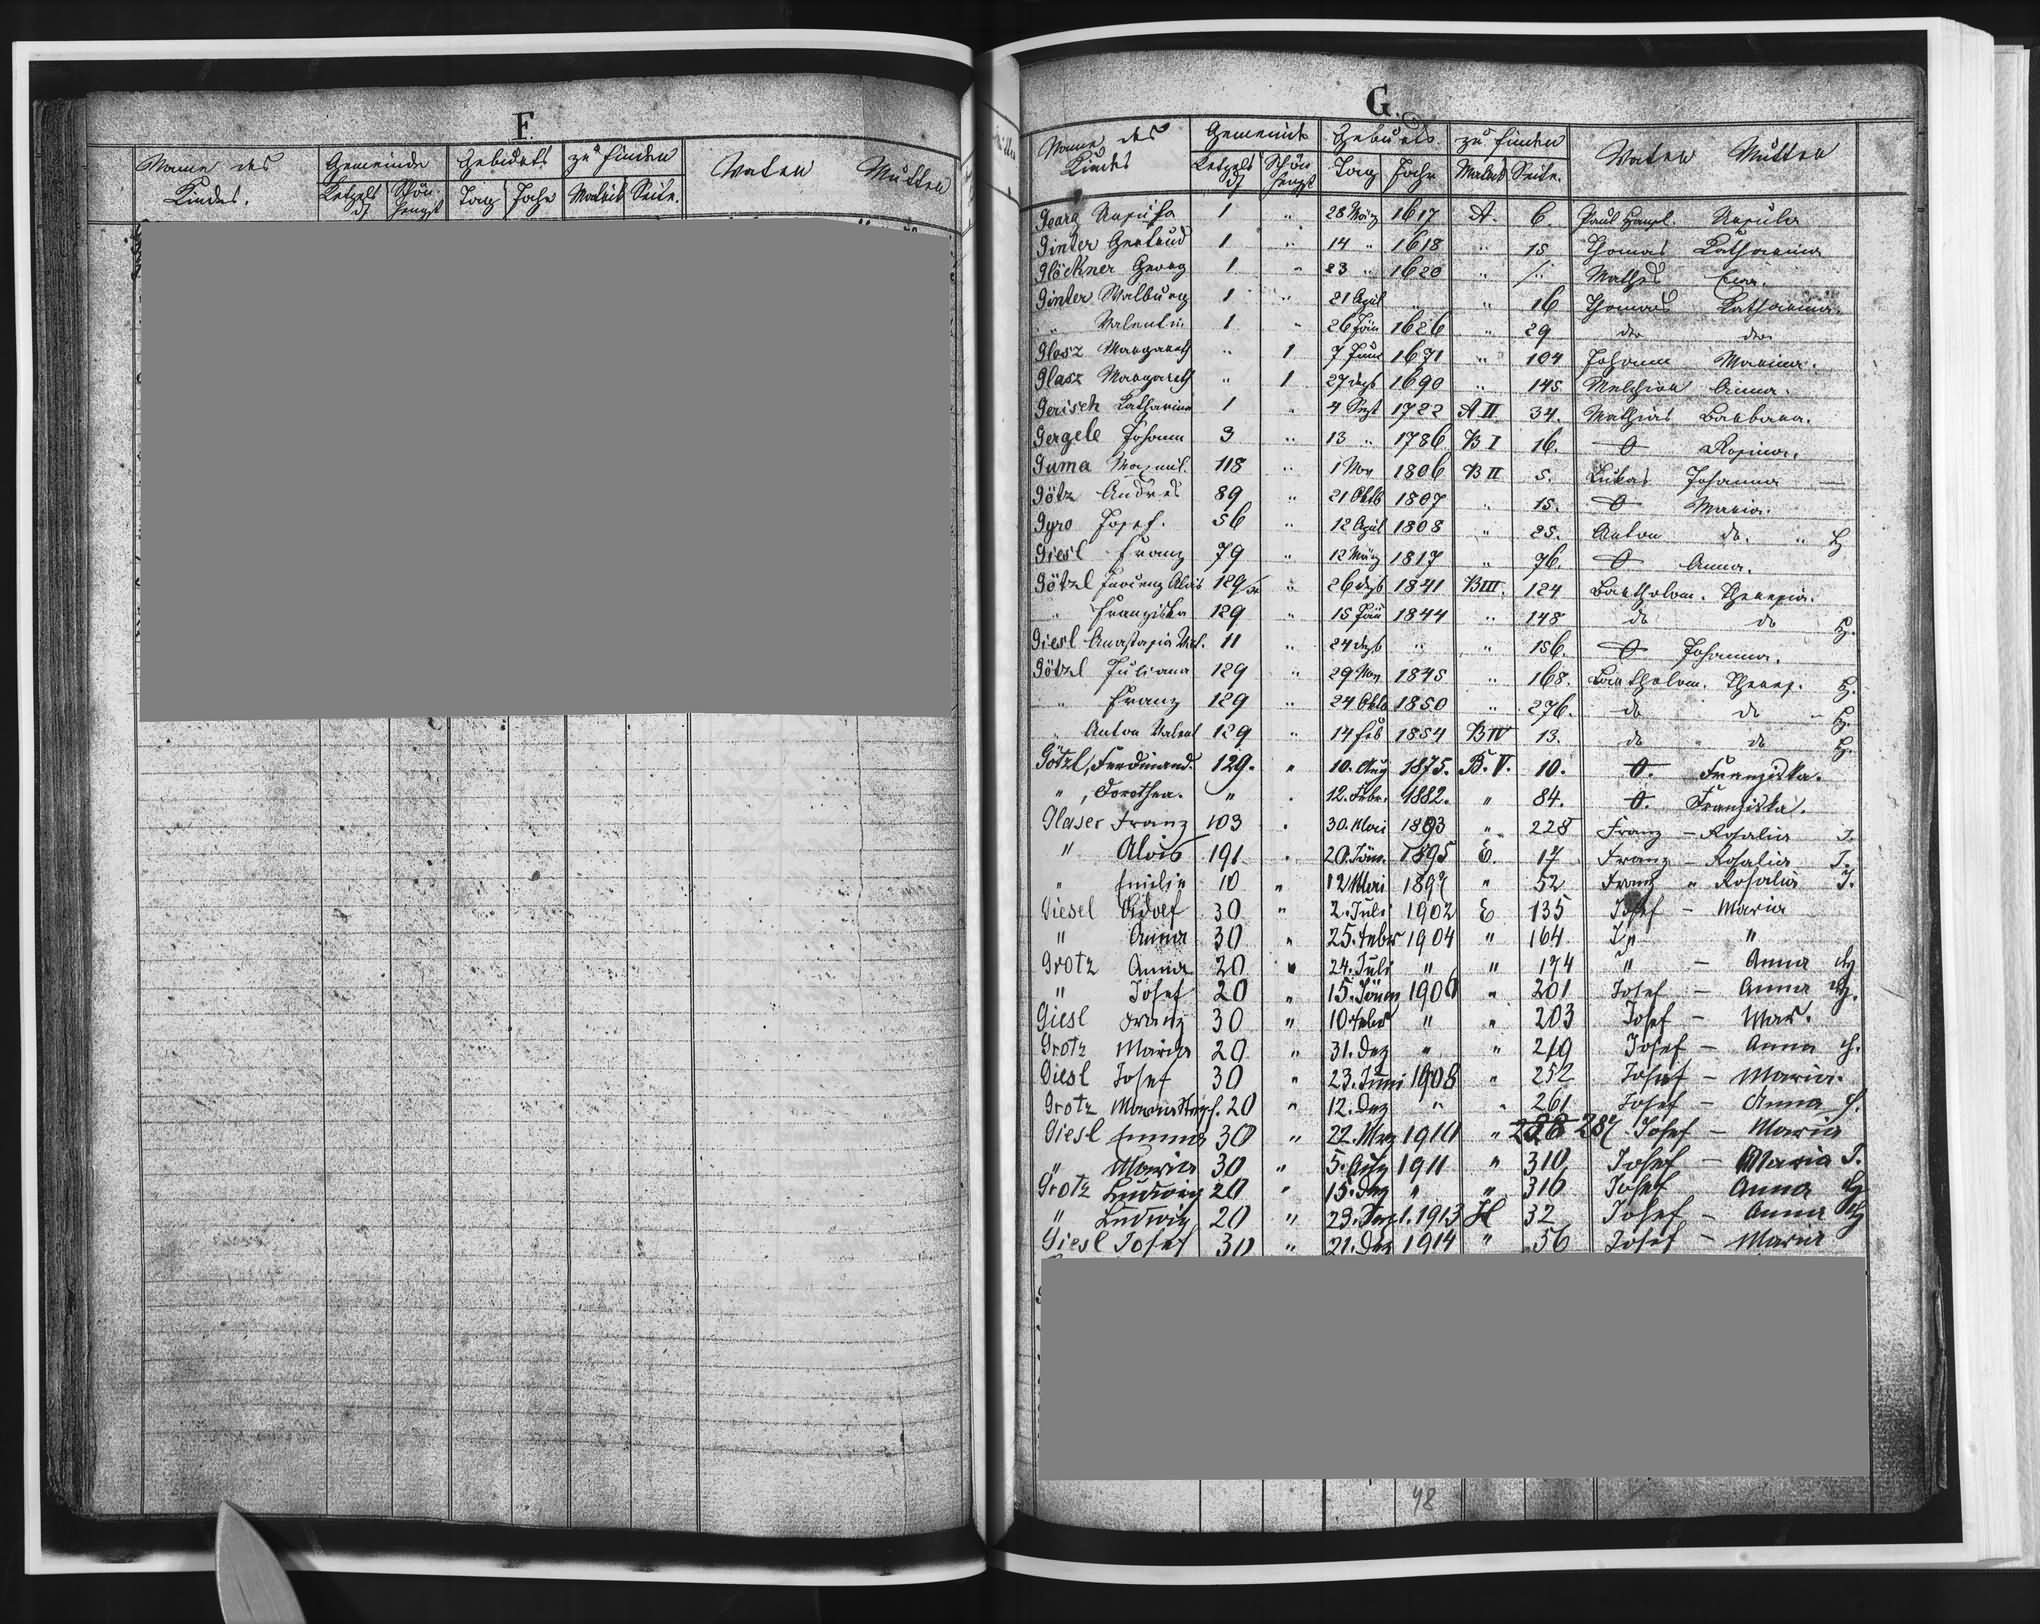 F.
Name des Kindes. Gemeinde Geburts zu finden Vater Mutter
Ketzelsdf Schönhengst Tag Jahr Matrik Seite.
G.
Name des Kindes Gemeinde Geburts zu finden Vater Mutter
Ketzelsdf Schönhengst Tag Jahr Matrik Seite.
Georg 1 " 28 März 1617 A. 6. Paul
Ginter Gertrud 1 " 14 " 1618 " 15 Thomas Katharina
Glöckner Georg 1 " 23 " 1620 " Mathes Eva.
Ginter Walburg 1 " 21 April " " 16 Thomas Katharina.
" Valentin 1 " 26 Jän 1626 " 29 dto dto
Glosz Margareth " 1 7 Juni 1671 " 104 Johann Marina.
Glasz Margareth " 1 27 dezb 1690 " 145 Melchior Anna.
Gerisch Katharina 1 " 4 Sept 1722 A II 34. Mathias Barbara.
Gergele Johann 3 " 13 " 1786 B I 16. O Rosina.
Guma Maxmil. 118 " 1 Nov 1806 B II 5. Lukas Johanna —
Götz Andres 89 " 21 Oktb 1807 " 15. O Maria.
Gyro Josef. 56 " 12 April 1808 " 25. Anton do. "
Giesl Franz 79 " 12 März 1817 " 76. O Anna.
Götzl Alois 129 " 26 dezb 1841 B III. 124 Bartholom. Theresia.
" Franziska 129 " 15 Jän 1844 " 148 do do
Giesl Anastasia 11 " 24 dezb " " 156. O Johanna.
Götzl Juliana 129 " 29 Nov 1845 " 168. Bartholom. Theres.
" Franz 129 " 24 Oktb 1850 " 276. do do "
" Anton Valent 129 " 14 feb 1854 B IV 13. do " do
Götzl, Ferdinand. 129. " 10. Aug 1875. B. V. 10. O. Franziska.
" , Dorothea. " . 12. Febr. 1882. " 84. O. Franziska.
Glaser Franz 103 . 30. Mai 1893 " 228 Franz — Rosalia J.
" Alois 191 . 20. Jän. 1895 E. 17 Franz — Rosalia J.
" Emilie 10 " 12 Mai 1897 " 52 Franz " Rosalia J.
Giesel Adolf 30 " 2. Juli 1902 E 135 Josef — Maria
" Anna 30 " 25. Febr 1904 " 164 "
Grotz Anna 20 " 24. Juli " " 174 " — Anna
" Josef 20 " 15. Jänn 1906 " 201 Josef — Anna
Giesl Franz 30 " 10 Febr " " 203 Josef — Mar.
Grotz Maria 20 " 31. Dez " " 219 Josef — Anna
Giesl Josef 30 " 23. Juni 1908 " 252 Josef — Maria.
Grotz 20 " 12. Dez " " 261 Josef — Anna
Giesl Emma 30 " 22. Mrz 1910 " 287 Josef — Maria
" Maria 30 " 5. 1911 " 310 Josef — Maria J.
Grotz Ludwig 20 " 15. Dez " " 316 Josef Anna
" Ludwig 20 " 1913 H 32 Josef — Anna
Giesl Josef 30 " 21. Dez 1914 " 56 Josef — Maria
48